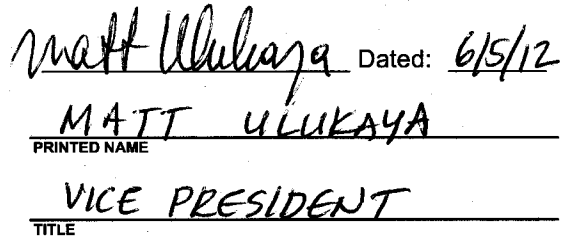 Matt Ulukaya Dated: 6/5/12
MATT ULUKAYA
PRINTED NAME
VICE PRESIDENT
TITLE